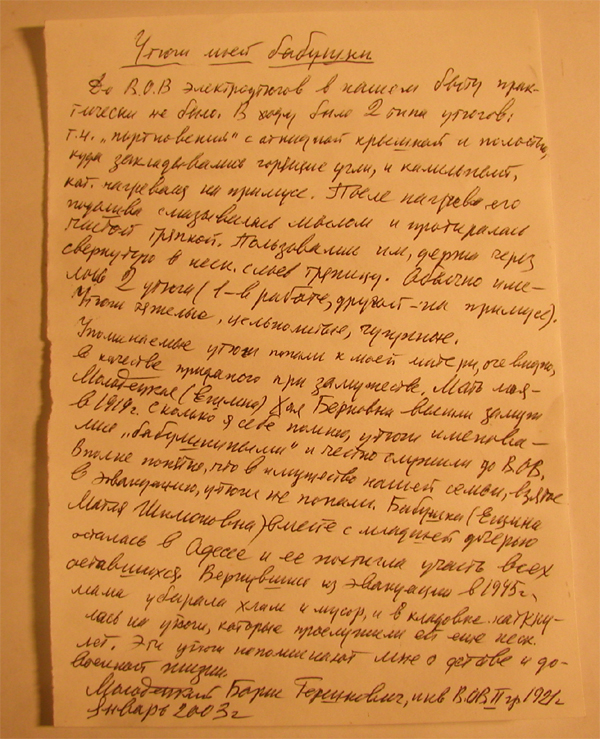 Утюги моей бабушки
До В.О.В электроутюгов в нашем быту прак-
тически не было. В ходу было 2 типа утюгов:
т.н. „портновский" с откидной крышкой и полостью,
куда закладывались горящие угли, и калильный,
кот. нагревали на примусе. После нагрева его
подошва смазывалась маслом и протиралась
чистой тряпкой. Пользовались им, держа через
свернутую в неск. слоев тряпицу. Обычно име-
лось 2 утюга (1-в работе, другой-на примусе).
Утюги тяжелые, цельнолитые, чугунные.
Упоминаемые утюги попали к моей матери, очевидно,
в качестве приданого при замужестве. Мать моя-
Молодецкая (Ецина) Хая Берковна вышла замуж
в 1919г. сколько я себя помню, утюги именова-
лись „бабушкиными" и честно служили до В.О.В.
Вполне понятно, что в имущество нашей семьи, взятое
в эвакуацию, утюги не попали. Бабушка (Ецина
Матля Шимоновна) вместе с младшей дочерью
осталась в Одессе и ее постигла участь всех
оставшихся. Вернувшись из эвакуации в 1945г.,
мама убирала хлам и мусор, и в кладовке наткну-
лась на утюги, которые прослужили ей еще неск.
лет. Эти утюги напоминают мне о детстве и до-
военной жизни.
Молодецкий Борис Гершкович, инв В.О.В II гр 1921г
Январь 2003г